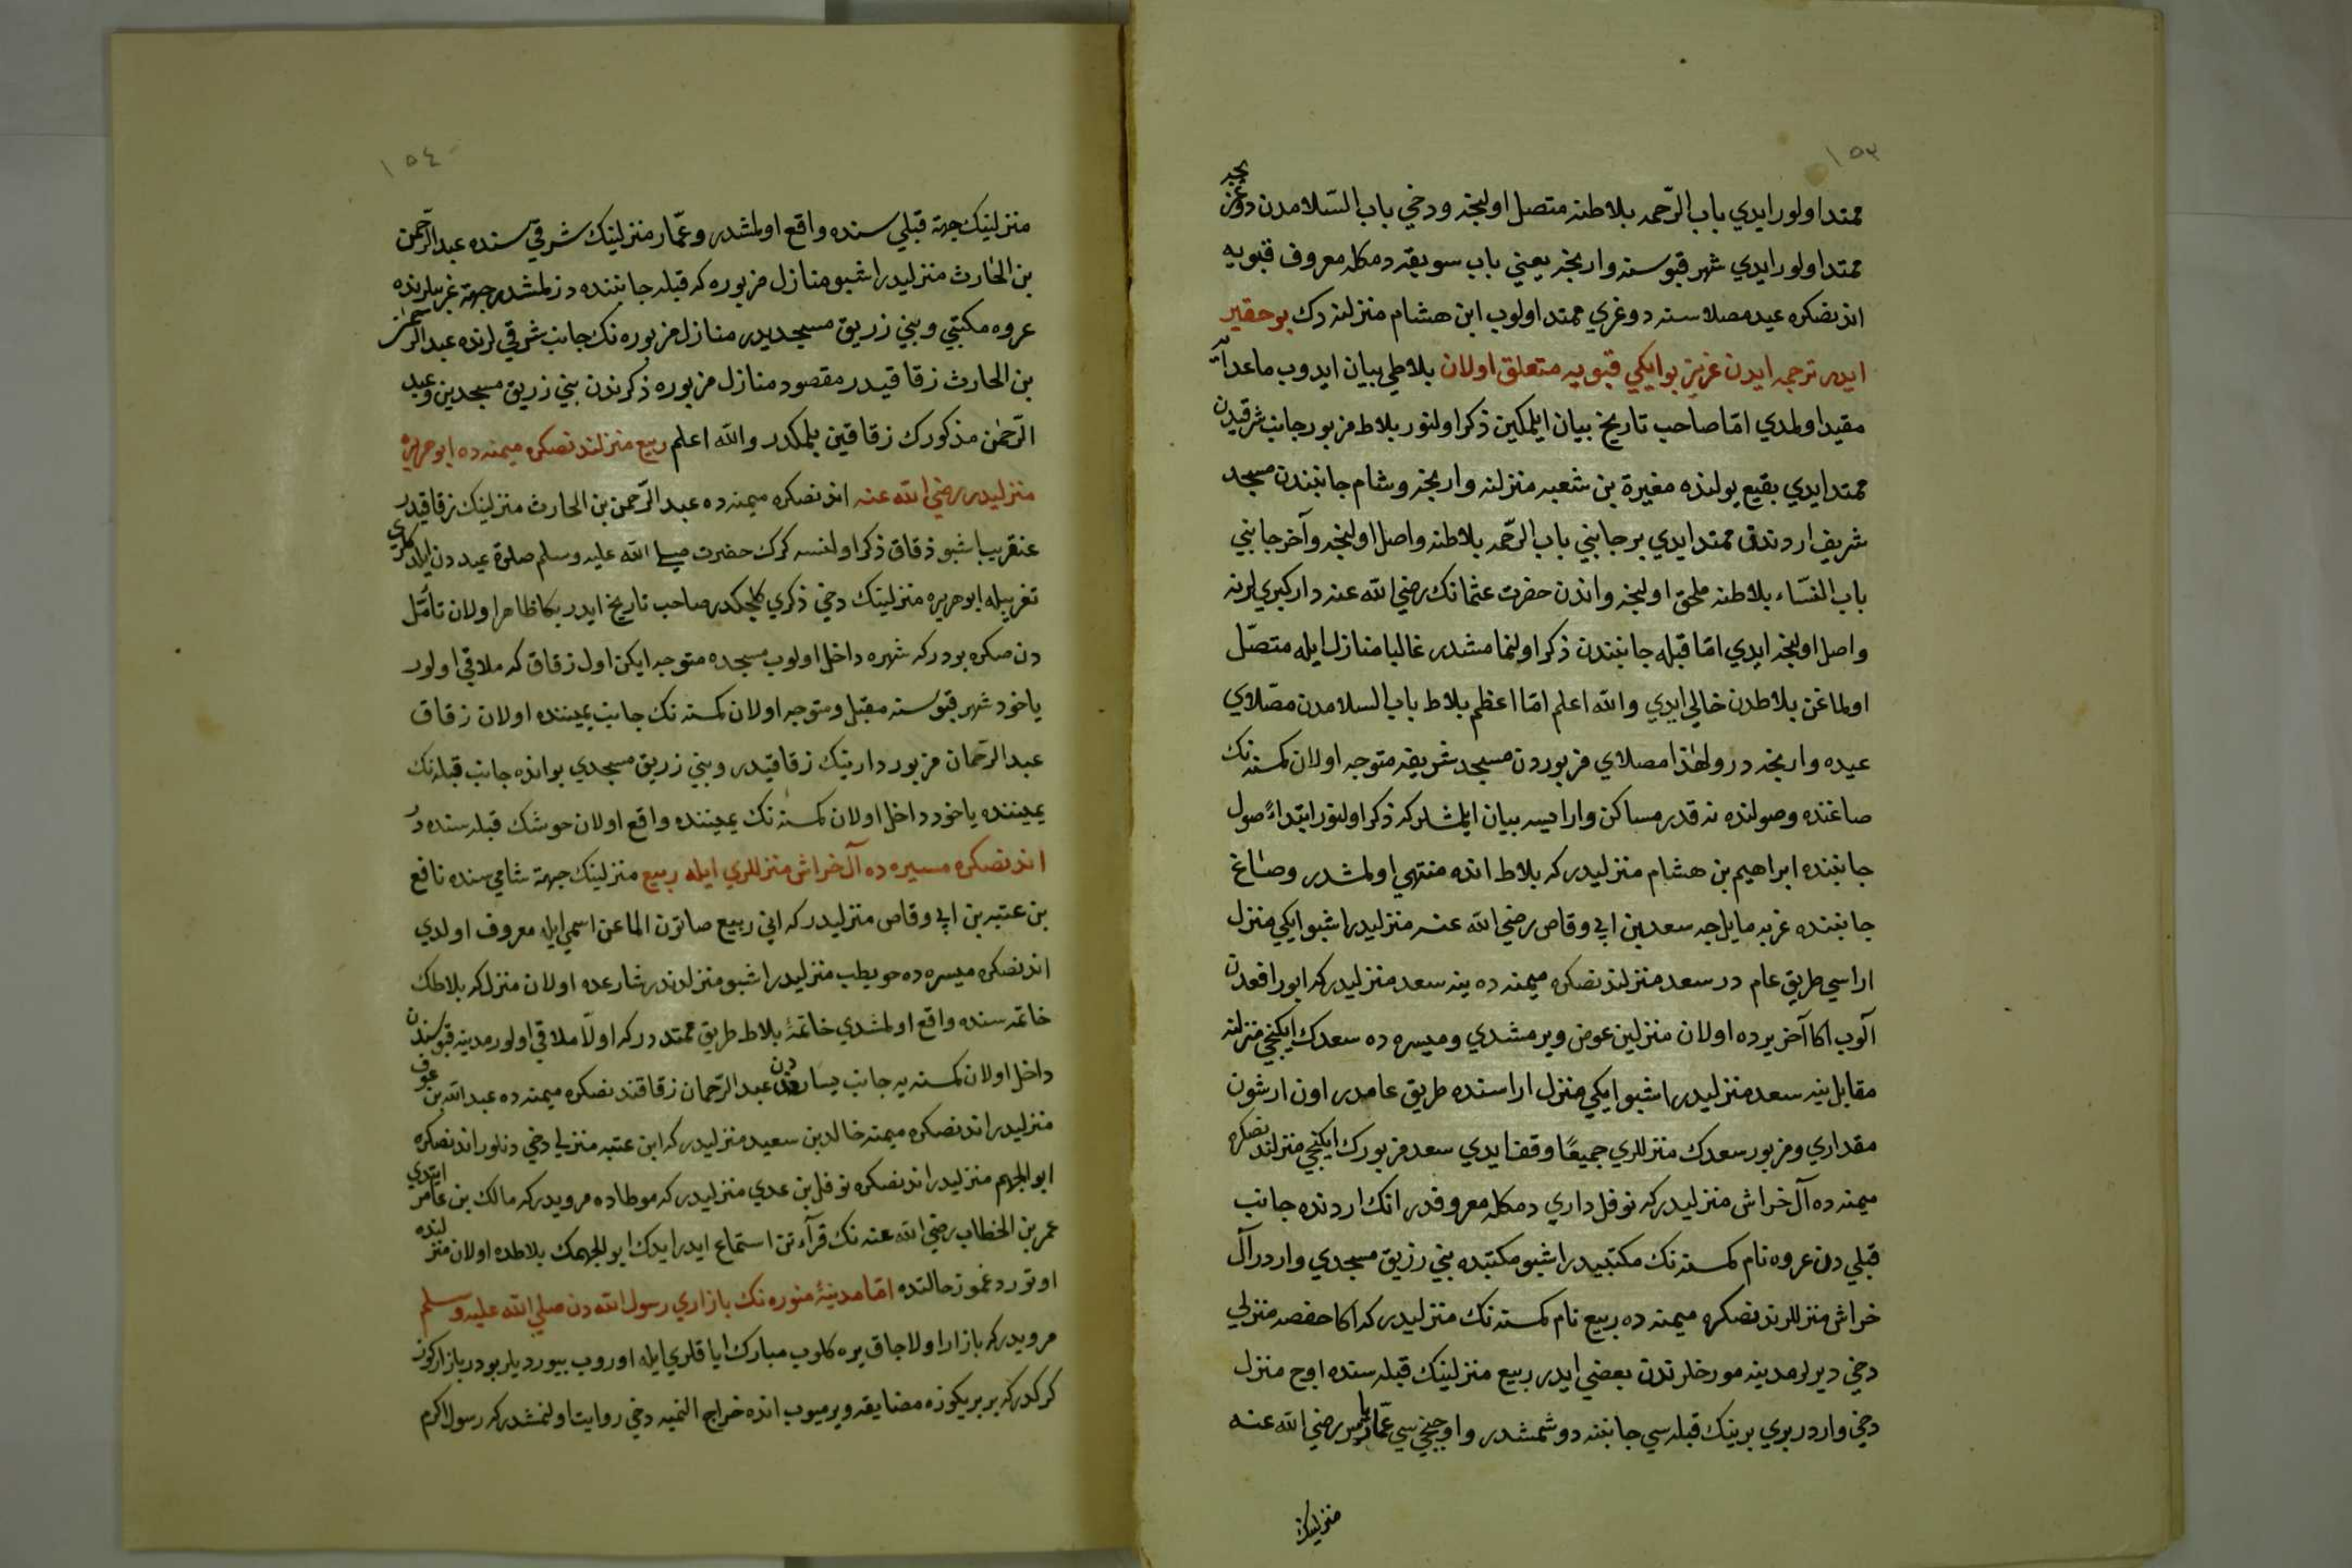 ١٥٣
ممتد اولور ايدي باب الرّحمه بلاطنه متصل اولنجه ودخي باب السّلامدن دوغريجه
ممتد اولور ايدي شهر قپوسنه وارنجه يعني باب سويقه دمكله معروف قپويه
اندنصكره عيد مصلاسنه دوغري ممتد اولوب ابن هشام منزلنه دك بو حقير
ايدر ترجمه ايدن عزيز بو ايكي قپويه متعلق اولان بلاطي بيان ايدوب ماعداسنه
مقيد اولمدي امّا صاحب تاريخ بيان ايلمكين ذكر اولنور بلاط مزبور جانب شرقيدن
ممتد ايدي بقيع يولنده مغيرة بن شعبه منزلنه وارنجه وشام جانبندن مسجد
شريف اردندن ممتد ايدي بر جانبي باب الرّحمه بلاطنه واصل اولنجه وآخر جانبي
باب النسّاء بلاطنه ملحق اولنجه واندن حضرت عثمانك رضي الله عنه دار كبري لرنه
واصل اولنجه ايدي امّا قبله جانبندن ذكر اولنمامشدر غالبا منازل ايله متصّل
اولماغن بلاطدن خالي ايدي والله اعلم امّا اعظم بلاط باب السلامدن مصّلاي
عيده وارنجه در ولهذا مصلاي مزبوردن مسجد شريفه متوجه اولان كمسنه نك
صاغنده وصولنده نه قدر مساكن وار ايسه بيان ايلمشلر كه ذكر اولنور ابتداءً صول
جانبنده ابراهيم بن هشام منزليدر كه بلاط انده منتهي اولمشدر وصاغ
جانبنده غربه مايلجه سعد بن ابي وقاص رضي الله عنه منزليدر اشبو ايكي منزل
اراسي طريق عام در سعد منزلندنصكره ميمنه ده ينه سعد منزليدر كه ابورافعدن
آلوب اكا آخر يرده اولان منزلين عوض ويرمشدي وميسره ده سعدك ايكنجي منزلنه
مقابل ينه سعد منزليدر اشبو ايكي منزل اراسنده طريق عامدر اون ارشون
مقداري ومزبور سعدك منزللري جميعًا وقف ايدي سعد مزبورك ايكنجي منزلندنصكره
ميمنه ده آل خراش منزليدر كه نوفل داري دمكله معروفدر انك اردنده جانب
قبلي دن عروه نام كمسنه نك مكتبيدر اشبو مكتبده بني رزيق مسجدي واردر آل
خراش منزللرندنصكره ميمنه ده ربيع نام كمسنه نك منزليدر كه اكا حفصه منزلي
دخي ديرلر مدينه مورخلرندن بعضي ايدر ربيع منزلينك قبله سنده اوج منزل
دخي واردر بري برينك قبله سي جاننه دوشمشدر واوجنجي سي عمّار ياسر رضي الله عنه
منزلينك
١٥٤
منزلينك جهة قبلي سنده واقع اولمشدر وعمّار منزلينك شرقي سنده عبد الرّحمن
بن الحارث منزليدر اشبو منازل مزبوره كه قبله جانبنده دزلمشدر جهة غربيلرنده
عروه مكتبي وبني زريق مسجديدر منازل مزبوره نك جانب شرقي لرنده عبد الرّحمن
بن الحارث زقاقيدر مقصود منازل مزبوره ذكرندن بني زريق مسجدين وعبد
الرّحمن مذكورك زقاقين بلمكدر والله اعلم ربيع منزلندنصكره ميمنه ده ابو هريره
منزليدر رضي الله عنه اندنصكره ميمنه ده عبد الرّحمن بن الحارث منزلينك زقاقيدر
عنقريب اشبو زقاق ذكر اولنسه كرك حضرت صلى الله عليه وسلم صلوة عيددن ايلدكلري
تقريبله ابو هريره منزلينك دخي ذكري كلجكدر صاحب تاريخ ايدر بكا ظاهر اولان تأمّل
دن صكره بودر كه شهره داخل اولوب مسجده متوجه ايكن اول زقاق كه ملاقي اولور
ياخود شهر قپوسنه مقبل ومتوجه اولان كمسنه نك جانب يميننده اولان زقاق
عبد الرّحمان مزبور دارينك زقاقيدر وبني زريق مسجدي بو انده جانب قبله نك
يميننده ياخود داخل اولان كمسنه نك يميننده واقع اولان حوشك قبله سنده در
اندنصكره مسيره ده آل خراش منزللري ايله ربيع منزلينك جهة شامي سنده نافع
بن عتبه بن ابي وقاص منزليدر كه اني ربيع صاتون الماغن اسمي ايله معروف اولدي
اندنصكره ميسره ده حويطب منزليدر اشبو منزلدندر شارعده اولان منزل كه بلاطك
خاتمه سنده واقع اولمشدي خاتمۀ بلاط طريق ممتددر كه اولّا ملاقي اولور مدينه قپوسندن
داخل اولان كمسنه يه جانب يساردن عبد الرّحمان زقاقندنصكره ميمنه ده عبد الله بن عوف
منزليدر اندنصكره ميمنه خالد بن سعيد منزليدر كه ابن عتبه منزلي دخي دنلور اندنصكره
ابو الجهم منزليدر اندنصكره نوفل بن عدي منزليدر كه موطاده مرويدر كه مالك بن عامر ايتدي
عمر بن الخطاب رضي الله عنه نك قرآءتن استماع ايدر ايدك ابو الجهمك بلاطده اولان منزلنده
اوتوردغموز حالتده امّا مدينۀ منوره نك بازاري رسول الله دن صلي الله عليه وسلم
مرويدر كه بازار اولاجاق يره كلوب مبارك اياقلري ايله اوروب بيورديلر بودر بازاركوز
كركدر كه بر بريكوزه مضايقه ويرميوب انده خراج النميه دخي روايت اولنمشدر كه رسول اكرم